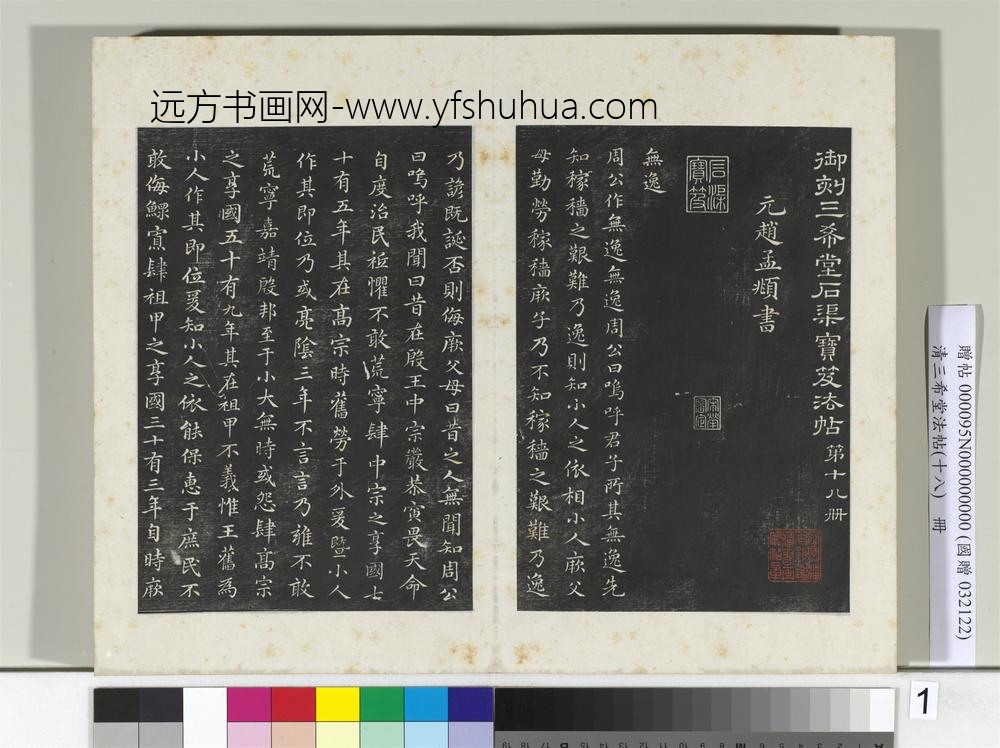 远方书画网-www.yfshuhua.com
御刻三希堂石渠寶笈法帖 第十八冊
元趙孟頫書
石渠寶笈
無逸
周公作無逸無逸周公曰嗚呼君子所其無逸先
知稼穡之艱難乃逸則知小人之依相小人厥父
母勤勞稼穡厥子乃不知稼穡之艱難乃逸
乃諺既誕否則侮厥父母曰昔之人無聞知周公
曰嗚呼我聞曰昔在殷王中宗嚴恭寅畏天命
自度治民祗懼不敢荒寧肆中宗之享國七
十有五年其在高宗時舊勞于外爰暨小人
作其即位乃或亮陰三年不言言乃雍不敢
荒寧嘉靖殷邦至于小大無時或怨肆高宗
之享國五十有九年其在祖甲不義惟王舊為
小人作其即位爰知小人之依能保惠于庶民不
敢侮鰥寡肆祖甲之享國三十有三年自時厥
贈帖 000095N000000000 (國贈 032122)
清三希堂法帖(十八) 冊
1